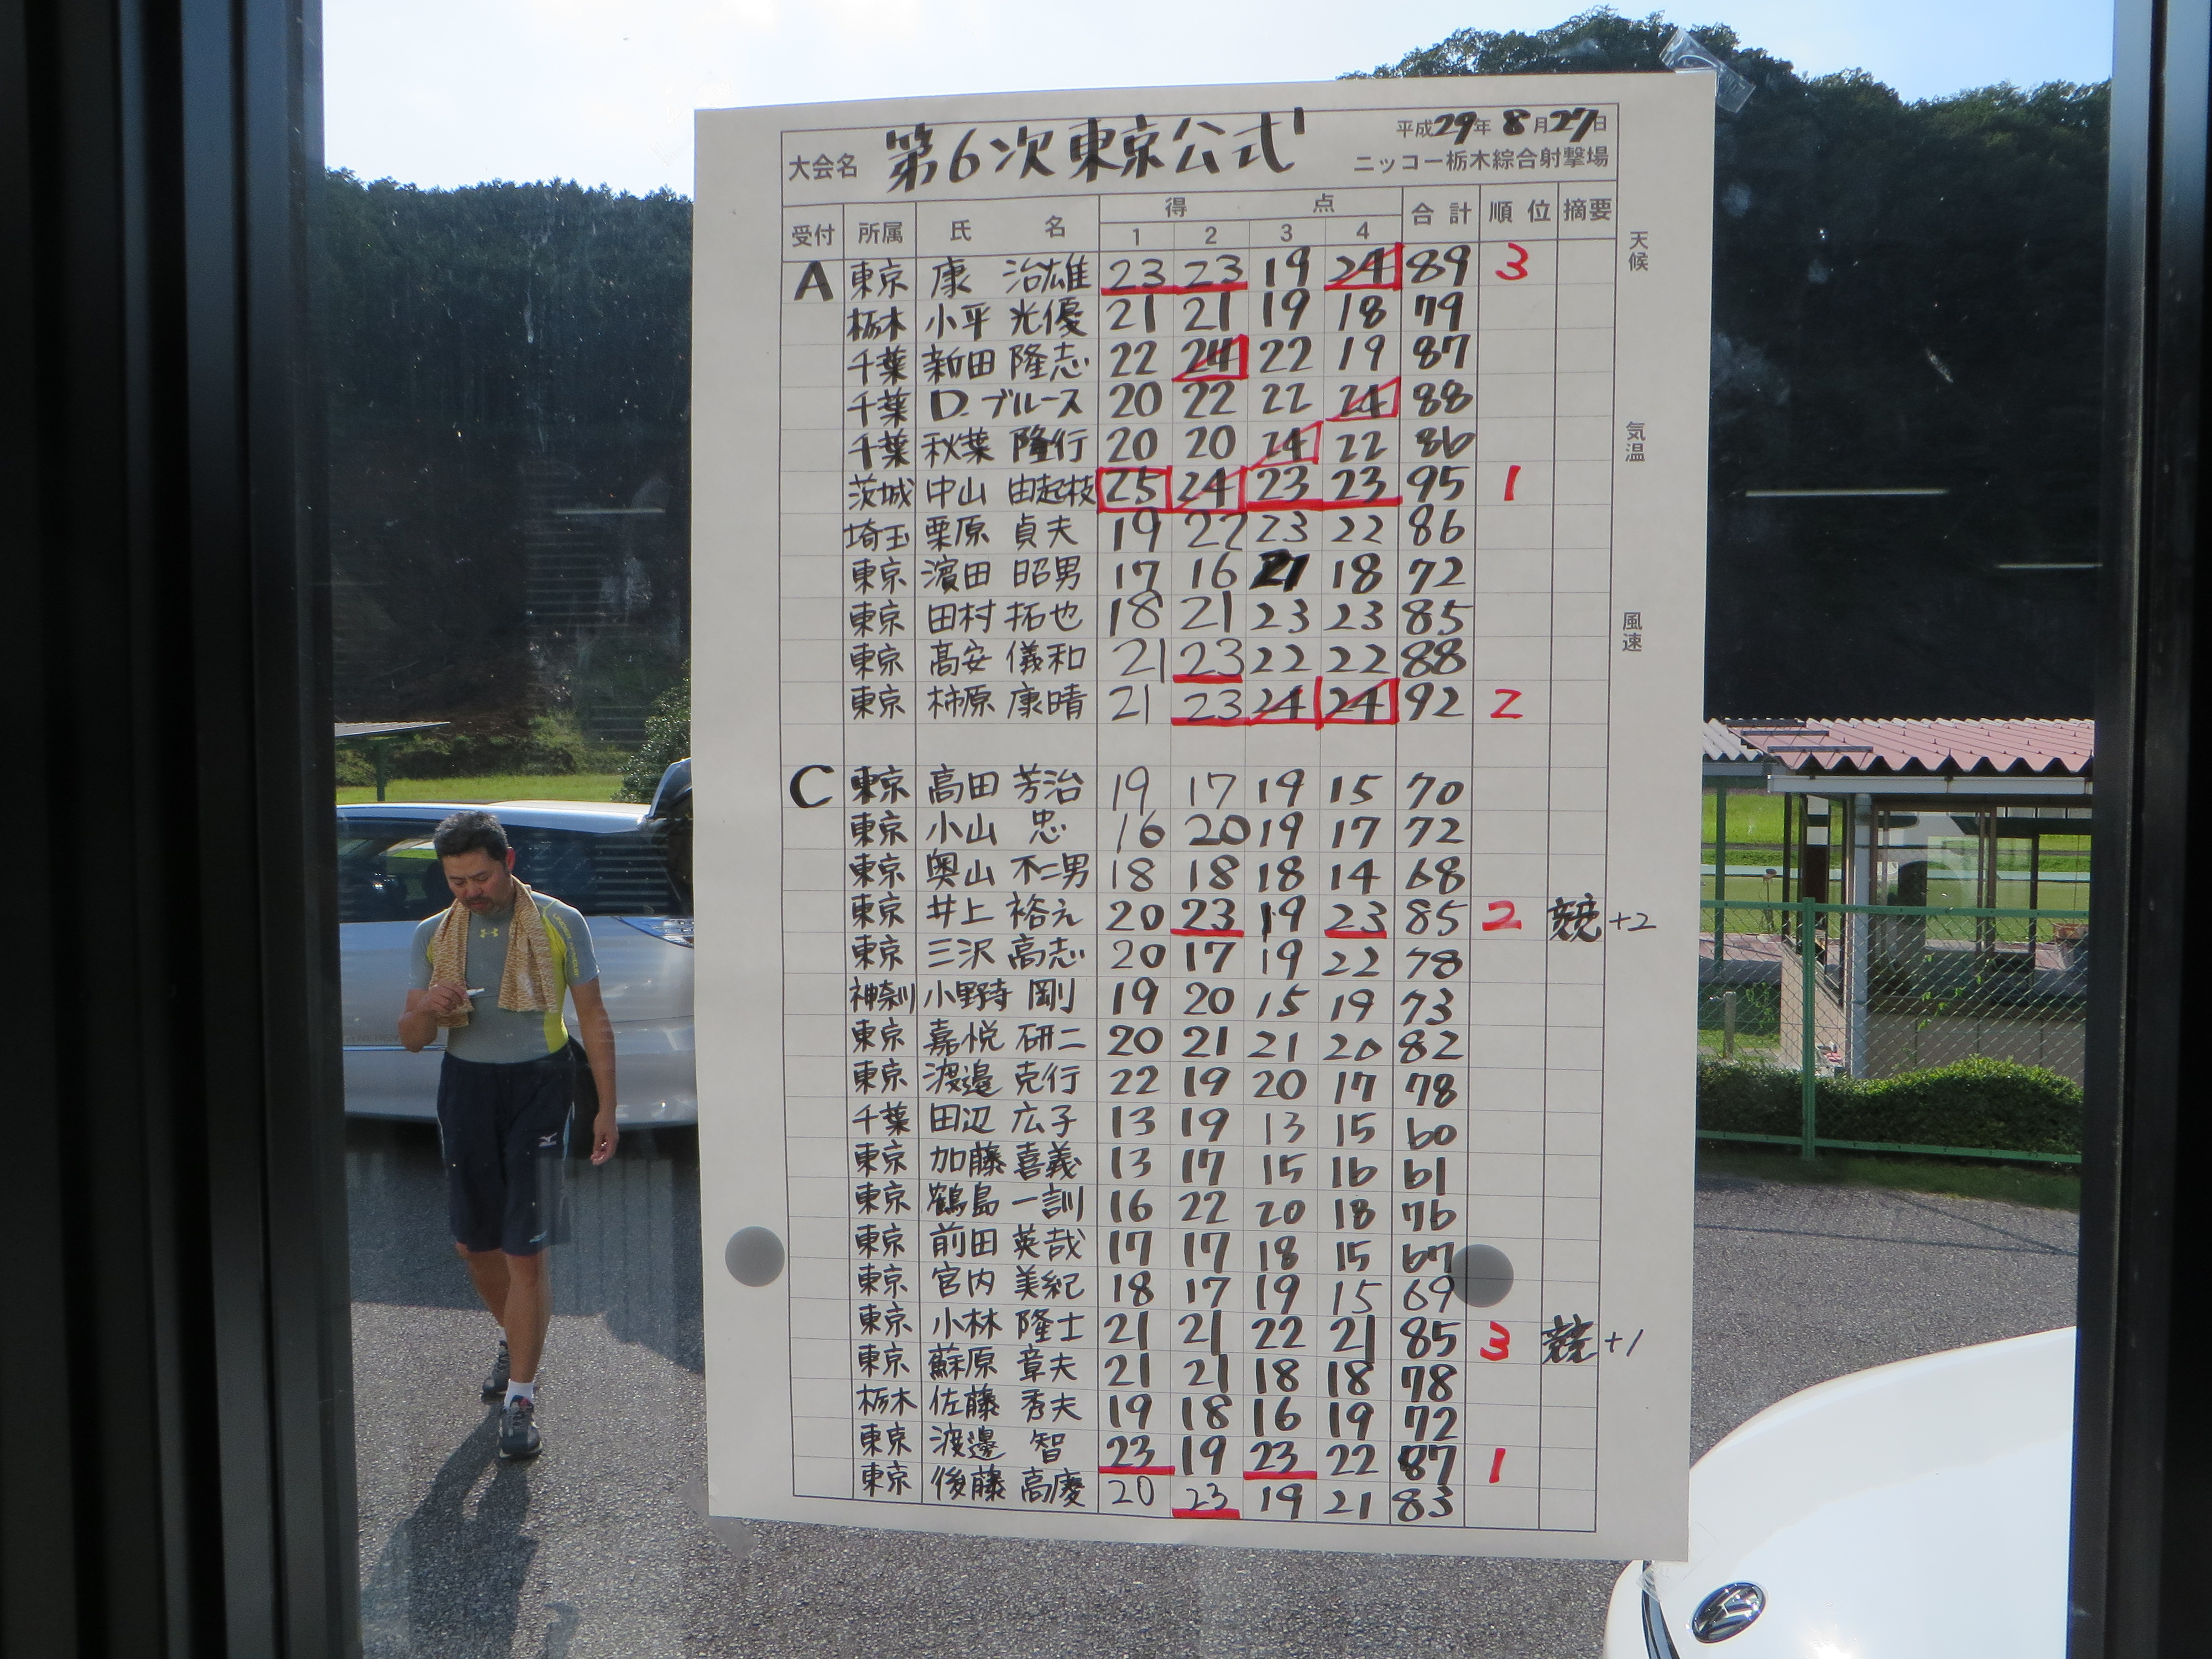 平成29年 8月27日
大会名 第6次東京公式 ニッコー栃木綜合射撃場
受付 所属 氏名 得点 合計 順位 摘要
1 2 3 4
A 東京 康 治雄 23 23 19 24 89 3
栃木 小平 光優 21 21 19 18 79
千葉 新田 隆志 22 24 22 19 87
千葉 D.ブルース 20 22 22 24 88
千葉 秋葉 隆行 20 20 24 22 86
茨城 中山 由起枝 25 24 23 23 95 1
埼玉 栗原 貞夫 19 22 23 22 86
東京 濱田 昭男 17 16 21 18 72
東京 田村 拓也 18 21 23 23 85
東京 高安 儀和 21 23 22 22 88
東京 柿原 康晴 21 23 24 24 92 2
C 東京 高田 芳治 19 17 19 15 70
東京 小山 忠 16 20 19 17 72
東京 奥山 不二男 18 18 18 14 68
東京 井上 裕元 20 23 19 23 85 2 競+2
東京 三沢 高志 20 17 19 22 78
神奈川 小野寺 剛 19 20 15 19 73
東京 嘉悦 研二 20 21 21 20 82
東京 渡邉 克行 22 19 20 17 78
千葉 田辺 広子 13 19 13 15 60
東京 加藤 喜義 13 17 15 16 61
東京 鶴島 一訓 16 22 20 18 76
東京 前田 英哉 17 17 18 15 67
東京 宮内 美紀 18 17 19 15 69
東京 小林 隆士 21 21 22 21 85 3 競+1
東京 蘇原 章夫 21 21 18 18 78
栃木 佐藤 秀夫 19 18 16 19 72
東京 渡邉 智 23 19 23 22 87 1
東京 後藤 高慶 20 23 19 21 83
天候
気温
風速